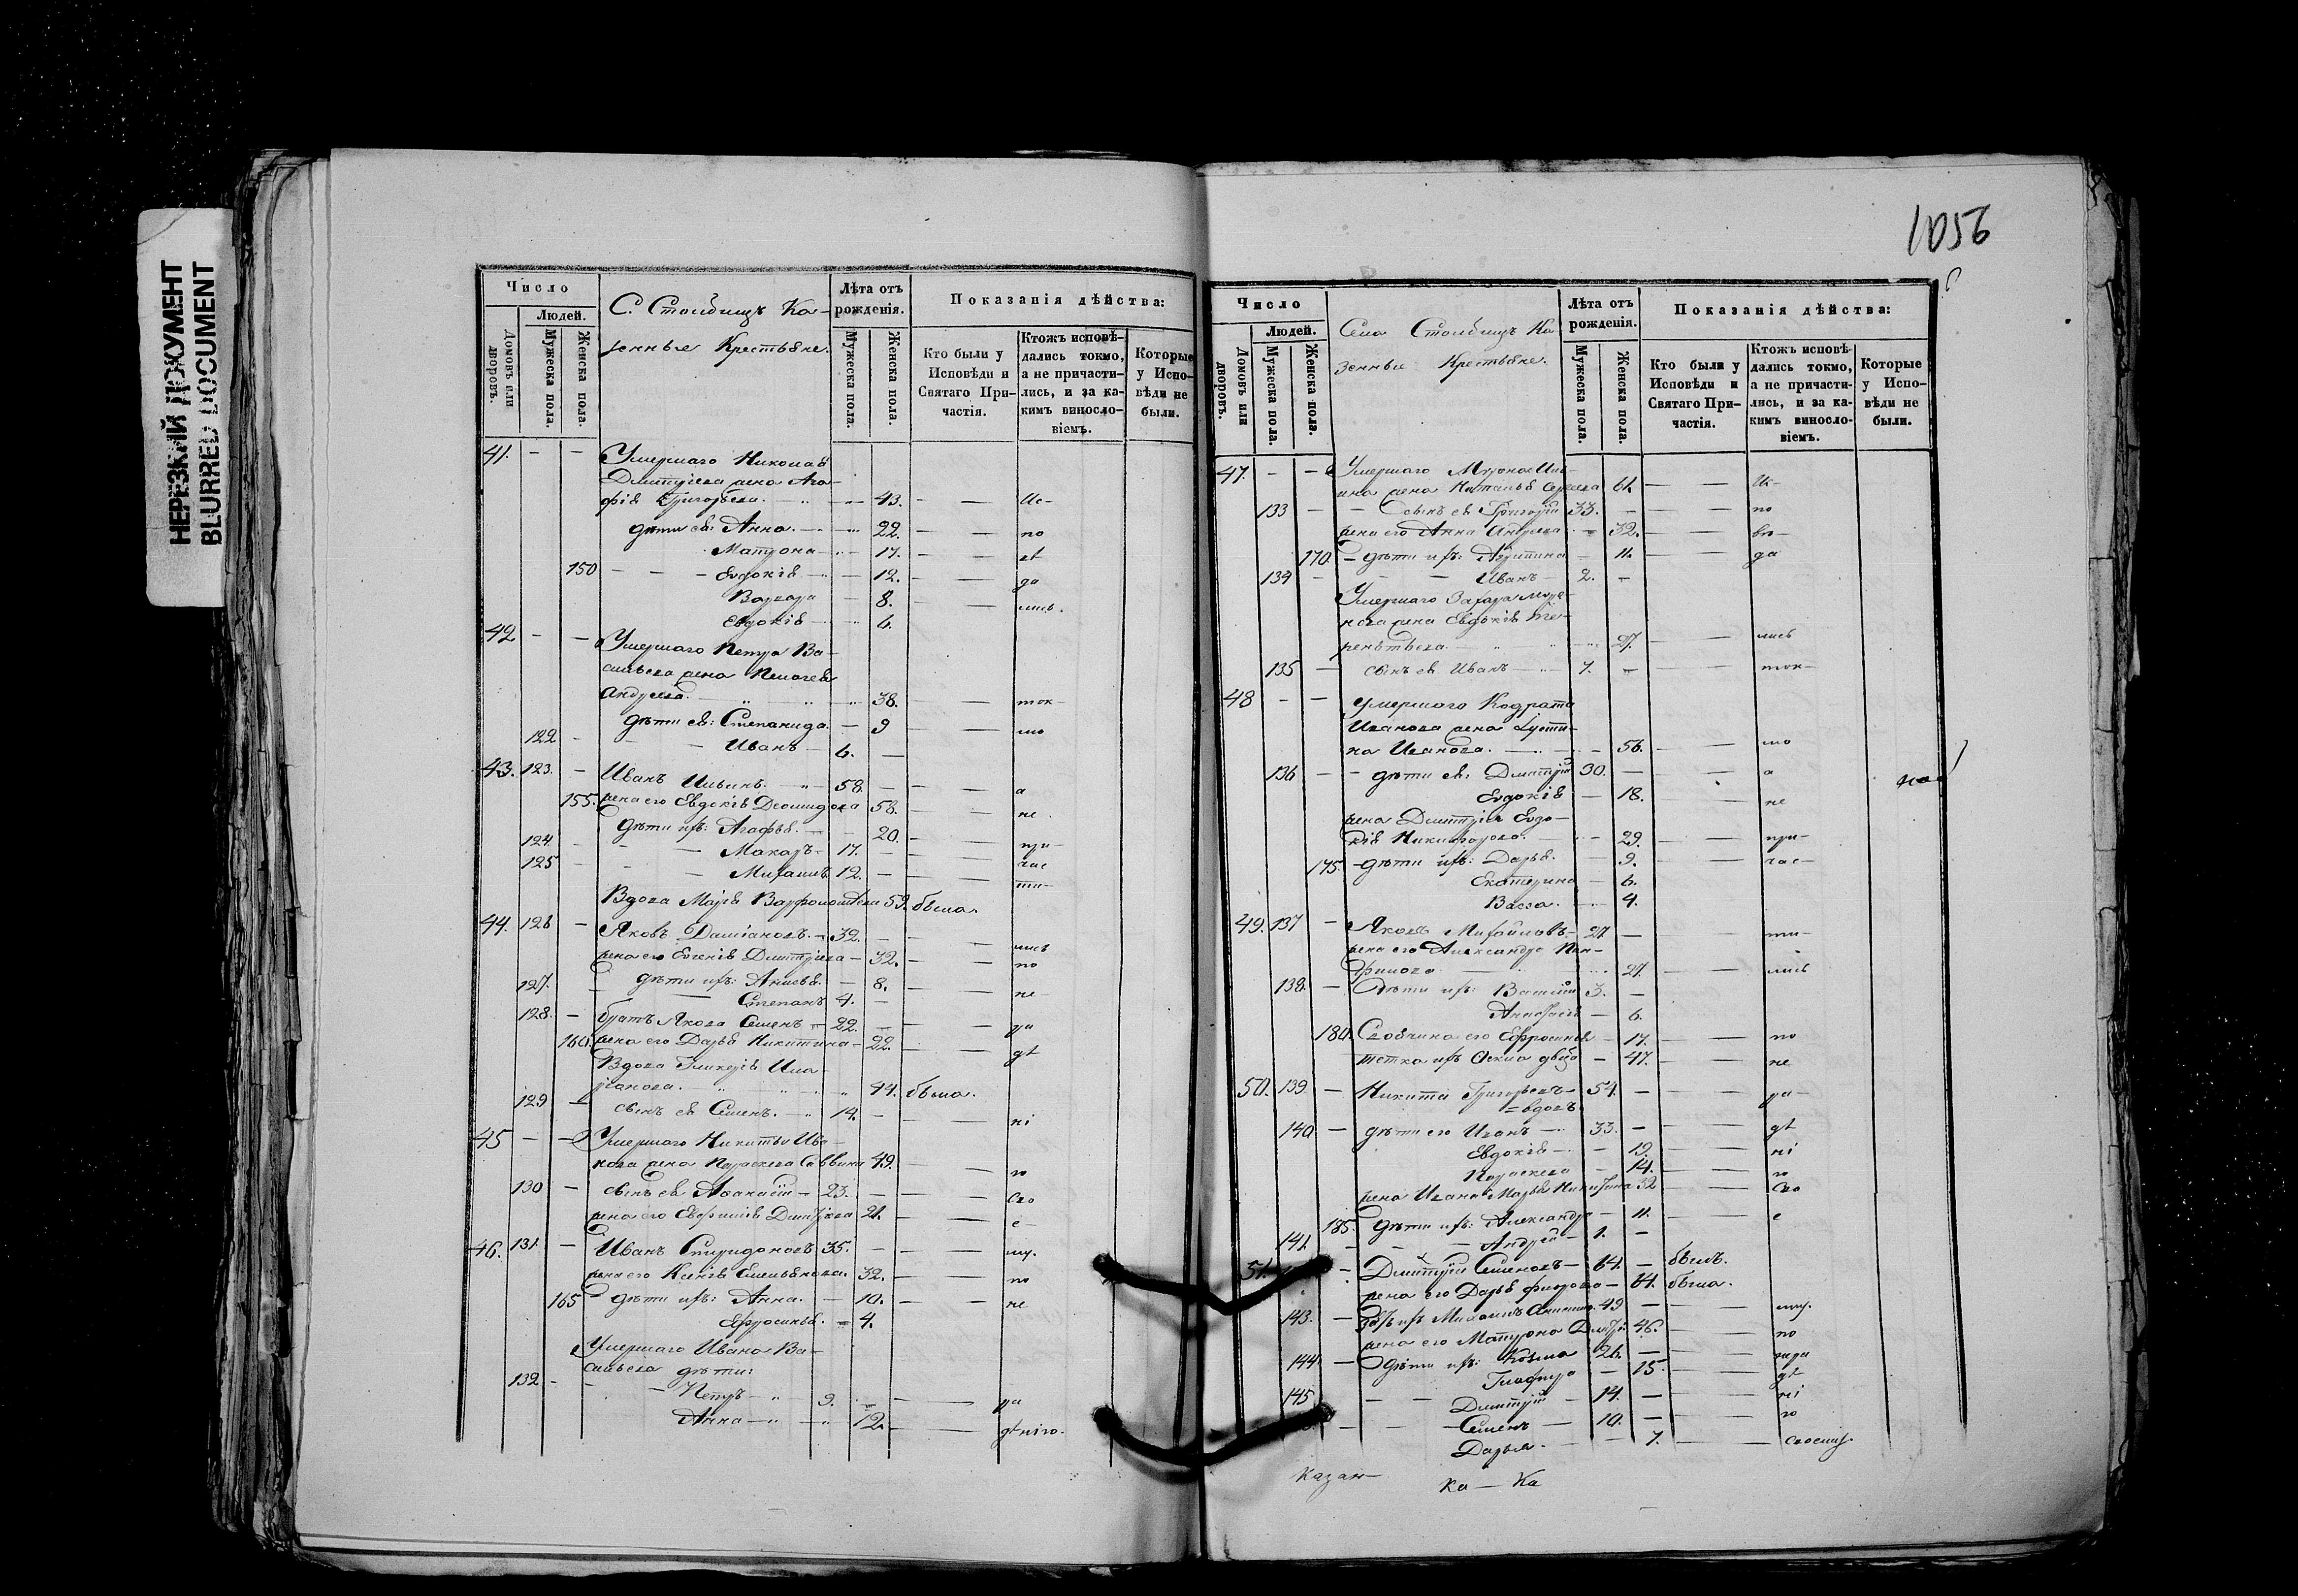 НЕРЕЗКИЙ ДОКУМЕНТ
BLURRED DOCUMENT
1056
Число
Людей.
Домовъ или дворовъ.
Мужеска пола.
Женска пола.
С. Столбищъ Ка-
зенные Крестьяне.
Лѣта отъ рожденія.
Мужеска пола.
Женска пола.
Показанія дѣйства:
Кто были у Исповѣди и Святаго При-частія.
Ктожъ исповѣ-дались токмо, а не причасти-лись, и за ка-кимъ винослo-віемъ.
Которые у Испо-вѣди не были.
41. Умершаго Николая
Димитріева жена Ага-
фія Григорьева. 43. Ис-
дѣти ея: Анна. 22. по
Матрона 17. вѣ
150 Евдокія 12. да
Варвара 8. лись.
Евдокія 6.
42 Умершаго Петра Ва-
сильева жена Пелагея
Андреева. 38. ток-
дѣти ея: Степанида. 9 мо
122 Иванъ 6.
43. 123. Иванъ Ильинъ. 58. а
155. жена его Евдокія Діомидова 58. не
дѣти ихъ: Агафья. 20. при-
124 Макаръ 17. час
125 Михаилъ 12. ти-
Вдова Марія Варфоломѣева 59. была.
44. 126 Яковъ Даміановъ. 32. лись
жена его Евгенія Димитріева 32. по
дѣти ихъ: Анисья. 8. не
127. Степанъ 4.
128. братъ Якова Семенъ 22. ра
160. жена его Дарья Никитина 22. дѣ
Вдова Гликерія
44. была.
129 сынъ ея Семенъ. 14. ні
45 Умершаго Никиты Ива-
нова жена Параскева Саввина 49. ю
130 сынъ ея Афанасій 23. сво
жена его Евфимія Димитріева 21. е
46. 131. Иванъ Спиридоновъ 35. му.
жена его Ксенія Емельянова. 32. по
165 дѣти ихъ: Анна. 10. не
Ефросинья. 4.
Умершаго Ивана Ва-
сильева дѣти:
132 Петръ 9. ра
Анна 12. дѣнію.
Число
Людей.
Домовъ или дворовъ.
Мужеска пола.
Женска пола.
Села Столбищъ Ка
зенные Крестьяне.
Лѣта отъ рожденія.
Мужеска пола.
Женска пола.
Показанія дѣйства:
Кто были у Исповѣди и Святаго При-частія.
Ктожъ исповѣ-дались токмо, а не причасти-лись, и за ка-кимъ винослo-віемъ.
Которые у Испо-вѣди не были.
47. Умершаго
жена Наталья 61. Ис-
133 сынъ ея Григорій 33. по
жена его Анна Андреева 32. вѣ-
170. дѣти ихъ: Агрипина 11. да
134 Иванъ 2.
Умершаго Захара
жена Евдокія Те-
рентьева 27. лись
135 сынъ ея Иванъ 7. ток-
48 Умершаго Кодрата
Иванова жена Іусти-
на Иванова. 56. мо
136 дѣти ея: Димитрій 30. а
Евдокія 18. не
жена Димитрія Евдо-
кія Никифорова. 29. при-
175. дѣти ихъ: Дарья. 9. час-
Екатерина 6.
Васса. 4.
49. 137 Яковъ Михайловъ 27. ти-
жена его Александра
27. лись
138. Дѣти ихъ: Василій 3.
Анастасія 6.
180. его Ефросинья 17. по
тетка ихъ 47. не
50. 139 Никита Григорьевъ 54. ра-
вдовъ
140 дѣти его Иванъ 33. дѣ
Евдокія 19. ні
Параскева 14. ю
жена Ивана Марья Никитина 32 сво
185. дѣти ихъ: Александра 11. е
141. Андрей 1.
51. Димитрій Семеновъ 64. былъ.
жена его Дарья 64. была.
143. Михаилъ 49 му.
жена его Матрона 46. по
144 Дѣти ихъ: Козьма 26. нера
Глафира 15. дѣ
145 Димитрій 14. ні
Семенъ 10. ю
Дарья. 7. своему.
Казан-
ка — Ка